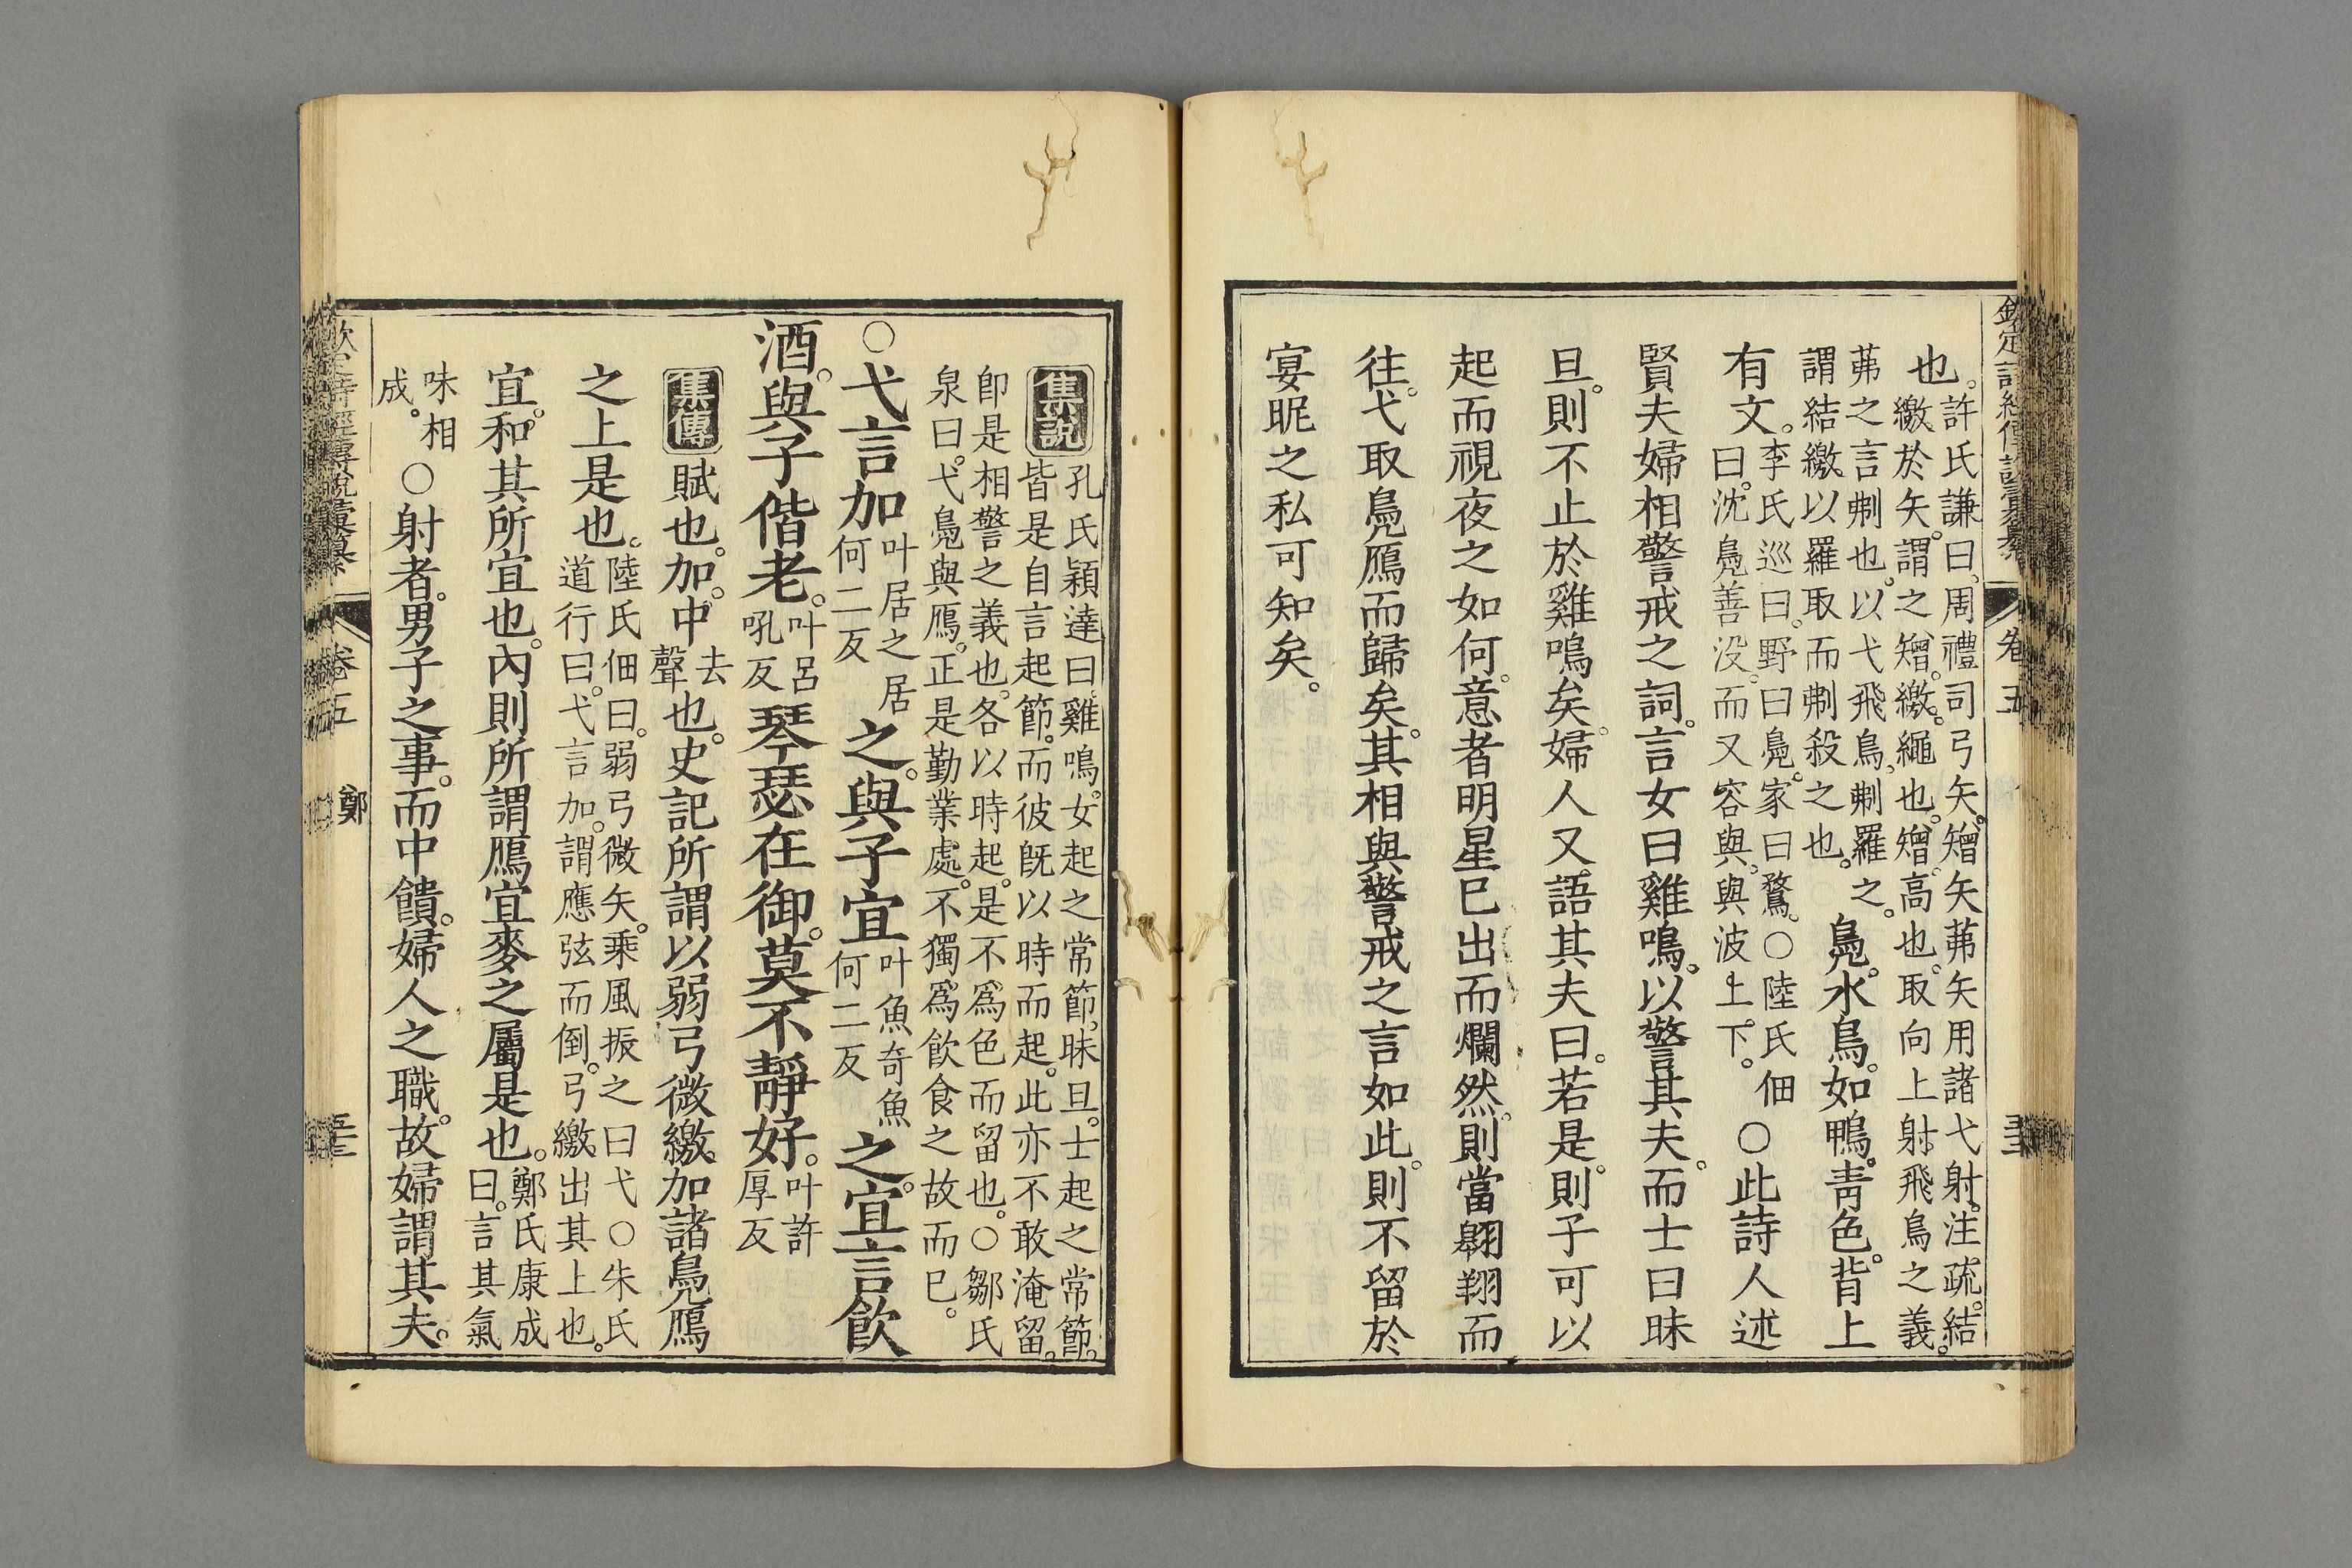 欽定詩經傳說彙纂 卷五
也。許氏謙曰。周禮司弓矢。矰矢茀矢用諸弋射。注疏。結
繳於矢。謂之矰。繳。繩也。矰。高也。取向上射飛鳥之義。
茀之言刜也。以弋飛鳥。刜羅之。
謂結繳以羅取而刜殺之也。鳧。水鳥。如鴨。青色。背上
有文。李氏巡曰。野曰鳧。家曰鶩。○陸氏佃
曰。沈鳧善没。而又容與。與波上下。○此詩人述
賢夫婦相警戒之詞。言女曰雞鳴。以警其夫。而士曰昧
旦。則不止於雞鳴矣。婦人又語其夫曰。若是。則子可以
起而視夜之如何。意者明星已出而爛然。則當翱翔而
往。弋取鳧鴈而歸矣。其相與警戒之言如此。則不留於
宴昵之私可知矣。
集說 孔氏穎達曰。雞鳴。女起之常節。昧旦。士起之常節。
皆是自言起節。而彼旣以時而起。此亦不敢淹留。
卽是相警之義也。各以時起。是不爲色而留也。○鄒氏
泉曰。弋鳧與鴈。正是勤業處。不獨爲飲食之故而已。
○弋言加叶居之居何二反之。與子宜叶魚奇魚何二反之。宜言飲
酒。與子偕老。叶呂吼反琴瑟在御。莫不靜好。叶許厚反
集傳 賦也。加。中去聲也。史記所謂以弱弓微繳。加諸鳧鴈
之上是也。陸氏佃曰。弱弓微矢。乘風振之曰弋○朱氏
道行曰。弋言加。謂應弦而倒。弓繳出其上也。
宜。和其所宜也。內則所謂鴈宜麥之屬是也。鄭氏康成
曰。言其氣
味相
成。○射者。男子之事。而中饋。婦人之職。故婦謂其夫。
欽定詩經傳說彙纂 卷五 鄭